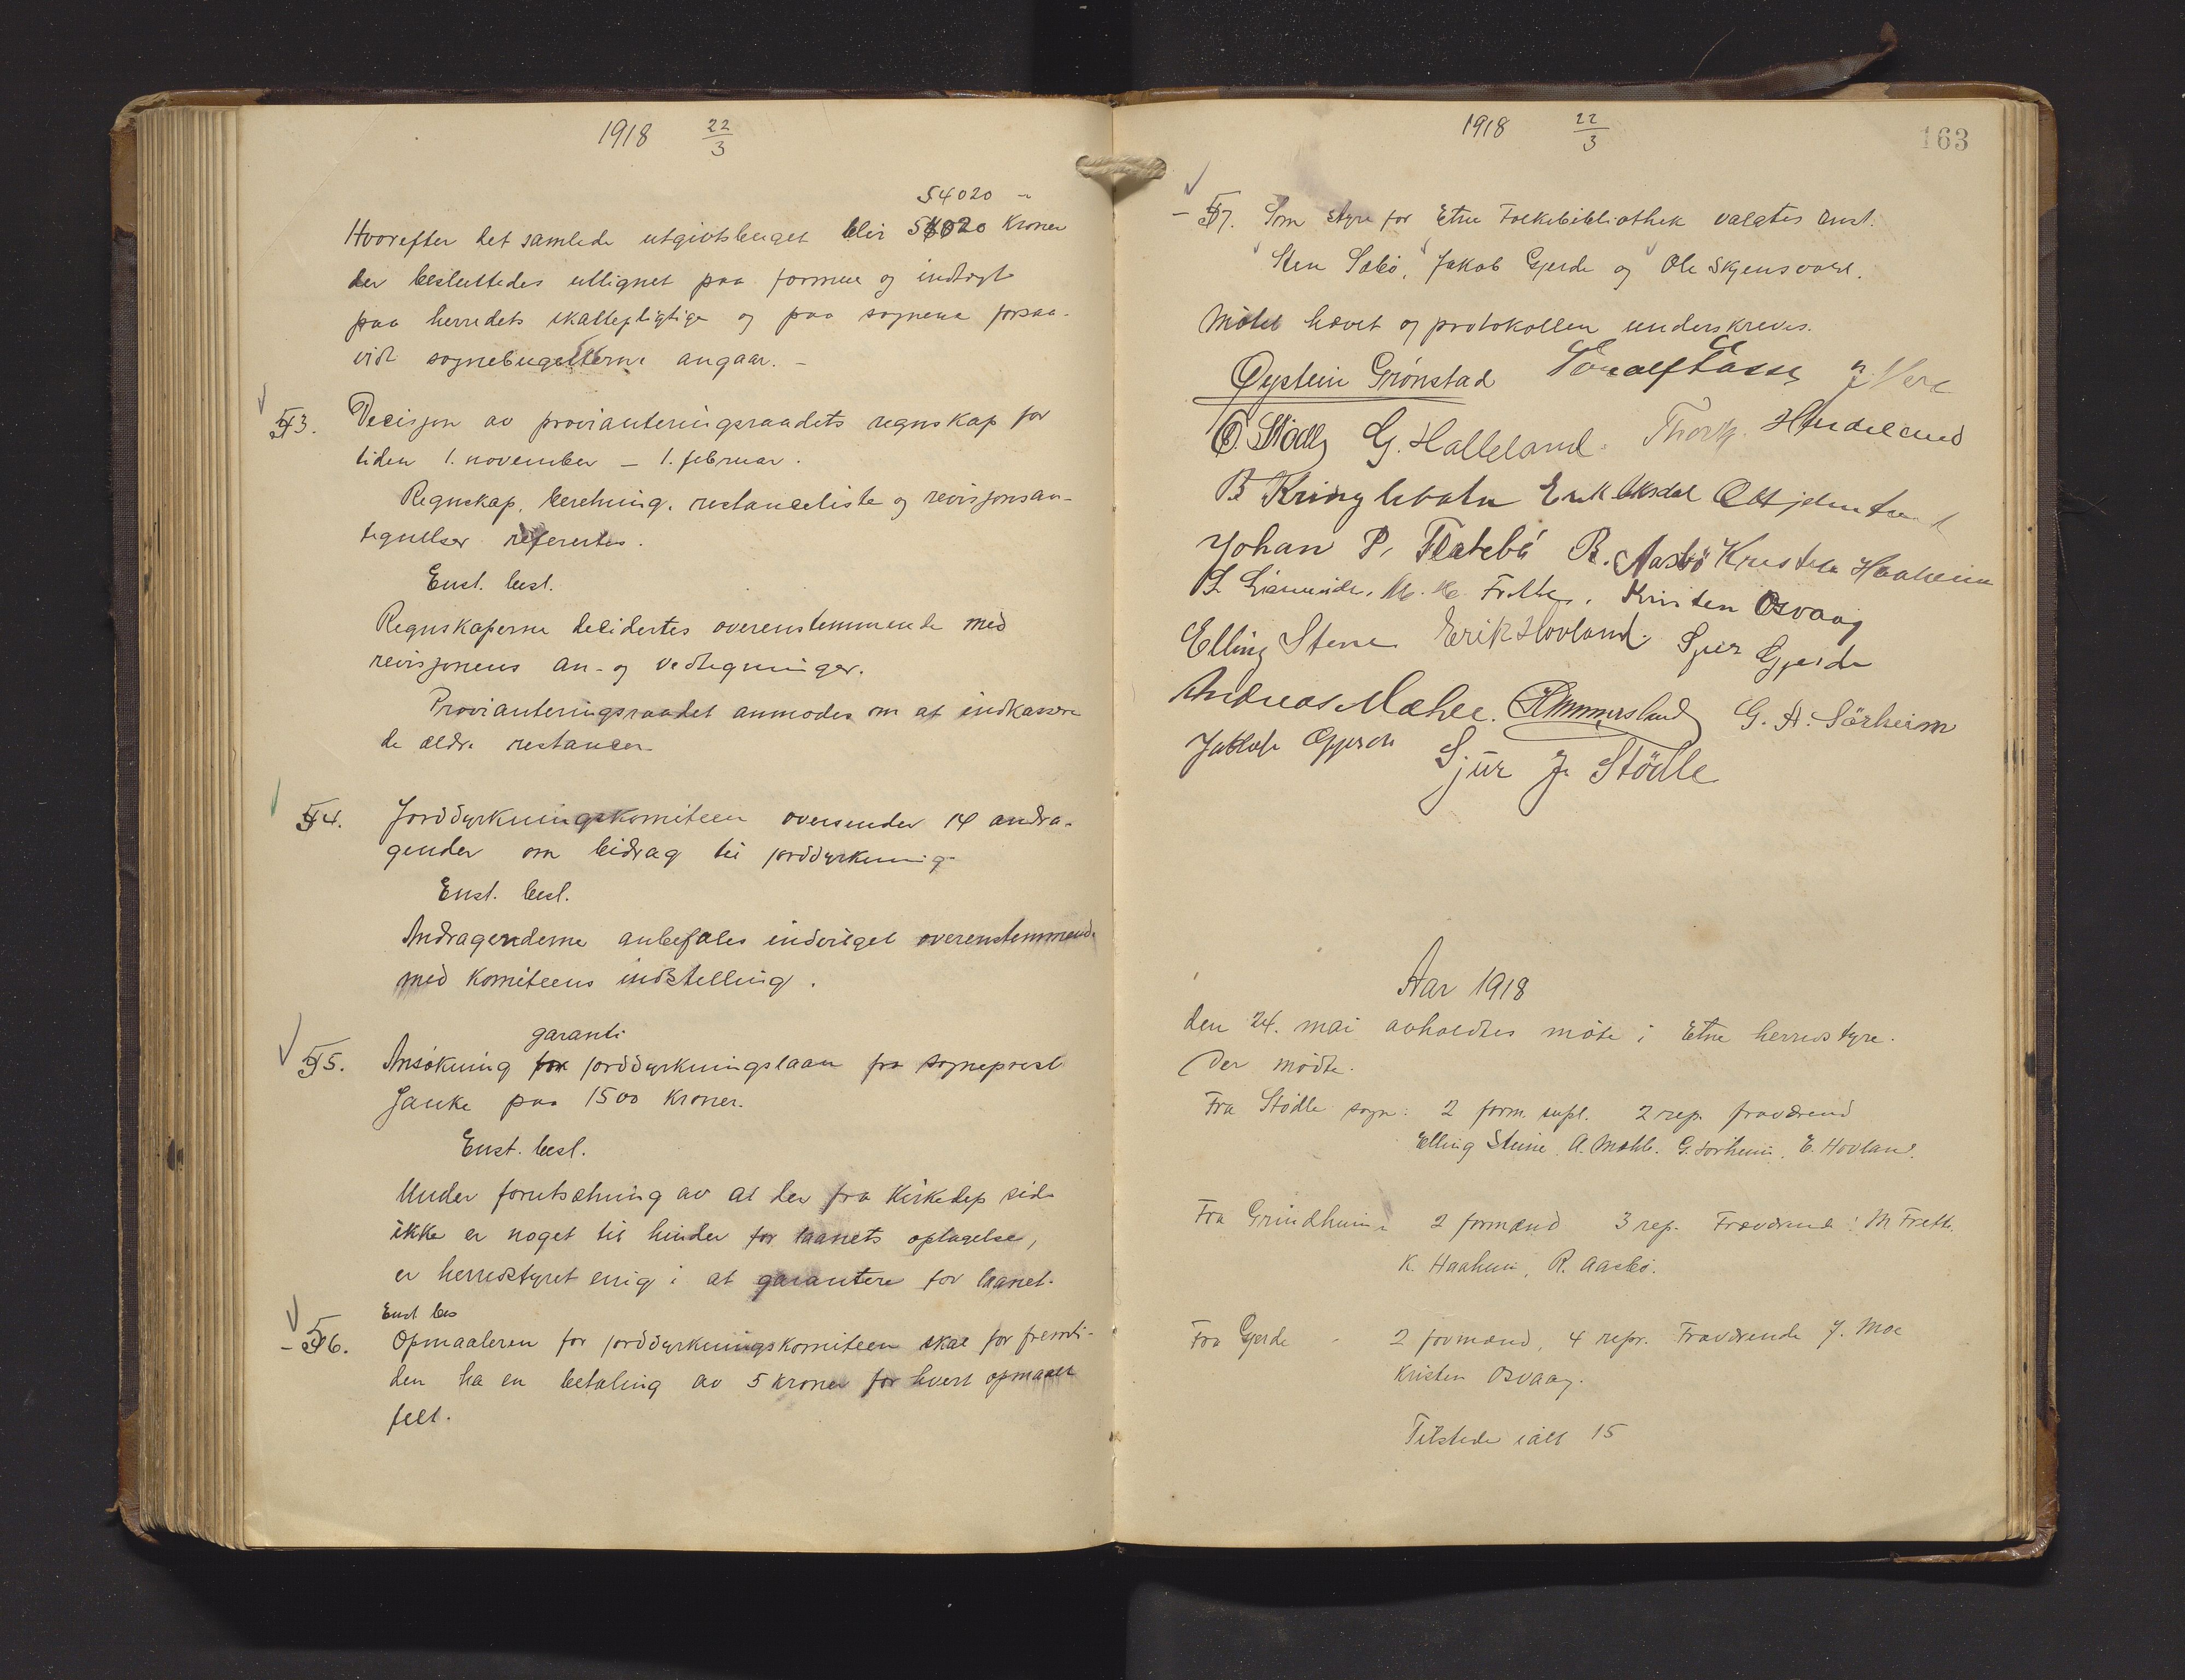 1918 22/3
54020 -
Hvorefter det samlede utgivtsbuget blir 54020 Kroner
der besluttedes utlignet paa formue og indtægt
paa herredets skattepligtige og paa sognene forsaa-
vidt sognebugetterne angaar. -
53. Decisjon av provianteringsraadets regnskap for
tiden 1. november - 1. februar.
Regnskap, beretning, restanceliste og revisjonsan-
tegnelser refertes.
Enst. besl.
Regnskaperne decidertes overenstemmende med
revisjonens an- og vedtegninger.
Provianteringsraadet anmodes om at indkassere
de ældre restancer
54. Jorddyrkningskomiteen oversender 14 andra-
gender om bidrag til jorddyrkning
Enst. besl.
Andragenderne anbefales indvilget overenstemmende
med Komiteens indstilling.
garanti
55. Ansøkning for jorddyrkningslaan fra sogneprest
Janke paa 1500 Kroner.
Enst. besl.
Under forutsætning av at der fra Kirkedep side
ikke er noget til hinder for laanets optagelse,
er herredstyret enig i at garantere for laanet.
Enst bes
- 56. Opmaaleren for jorddyrkningskomiteen skal for fremti-
den ha en betaling av 5 kroner for hvert opmaalt
felt.
1918 22/3
163
- 57. Som styre for Etne Folkebibliothek valgtes enst.
Sten Sæbø, Jakob Gjerde og Ole Skjensvold.
Møtet hævet og protokollen underskreves.
Øystein Grønstad
O. Stødle G. Halleland. Thork. Hindeland
B Kringlebotn Erik Aksdal
Johan P. Flatebø R. Aasbø Kristen Haaheim
M. M. Frette. Kristen Osvaag
Elling Stene Erik Hovland. Sjur Gjerde
Andreas Mæhle. Ommersland G. A. Sörheim
Jakob Gjerde Sjur J. Stödle
Aar 1918
den 24. mai avholdtes møte i Etne herredstyre.
Der mødte.
Fra Stødle sogn: 2 form. supl. 2 rep. fraværend
Elling Steine, A. Mæhle. G. Sørheim, E. Hovland.
Fra Grindheim 2 formænd 3 rep. Fraværende: M Frette.
K. Haaheim, R. Aasbø.
Fra Gjerde - 2 formænd, 4 repr. Fraværende J. Moe
Kristen Osvaag.
Tilstede ialt 15